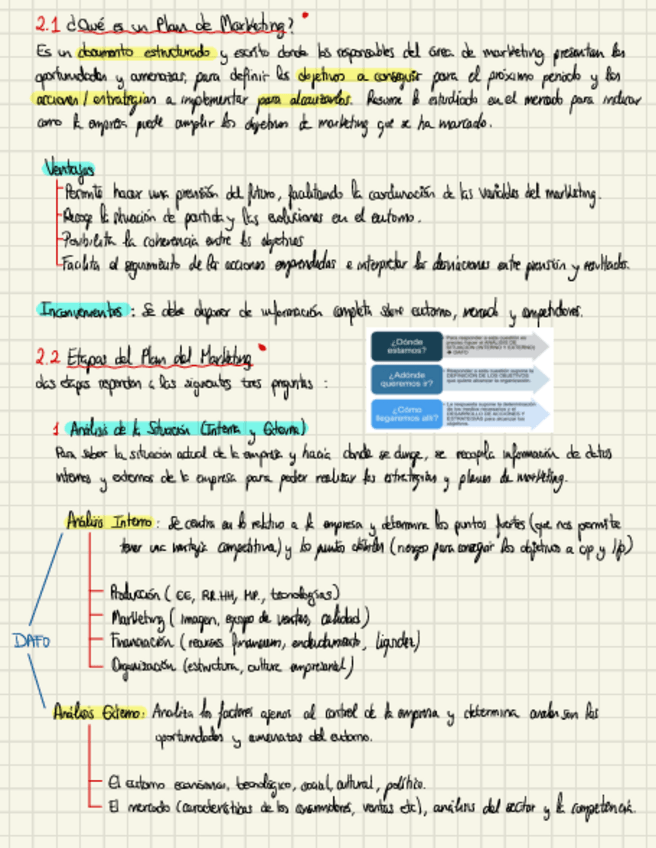 2.1 ¿Qué es un Plan de Marketing?
Es un documento estructurado y escrito donde los responsables del área de marketing presentan las
oportunidades y amenazas, para definir los objetivos a conseguir para el próximo periodo y las
acciones / estrategias a implementar para alcanzarlos. Resume lo estudiado en el mercado para indicar
como la empresa puede cumplir los objetivos de marketing que se ha marcado.
Ventajas
Permite hacer una previsión del futuro, facilitando la coordinación de las variables del marketing.
Recoge la situación de partida y las evoluciones en el entorno.
Posibilita la coherencia entre los objetivos
Facilita el seguimiento de las acciones emprendidas e interpretar las desviaciones entre previsión y resultados.
Inconvenientes : Se debe disponer de información completa sobre entorno, mercado y competidores.
2.2 Etapas del Plan del Marketing
Las etapas responden a las siguientes tres preguntas :
¿Dónde estamos?
Para responder a esta cuestión es
SITUACIÓN (INTERNO Y EXTERNO)
DAFO
¿Adónde queremos ir?
Responder a esta cuestión supone la
DEFINICIÓN DE LOS OBJETIVOS
que quiere alcanzar la organización.
¿Cómo llegaremos allí?
La respuesta supone la determinación
de los medios necesarios y el
DESARROLLO DE ACCIONES Y
ESTRATEGIAS para alcanzar los
objetivos.
1 Análisis de la Situación (Interna y Externa)
Para saber la situación actual de la empresa y hacia donde se dirige, se recopila información de datos
internos y externos de la empresa para poder realizar las estrategias y planes de marketing.
Análisis Interno : Se centra en lo relativo a la empresa y determina los puntos fuertes (que nos permite
tener una ventaja competitiva) y los puntos débiles (riesgos para conseguir los objetivos a cp y l/p)
Producción ( CE, RR.HH, MP., tecnologías)
Marketing ( imagen, equipo de ventas, calidad)
Financiación ( recursos financieros, endeudamiento, liquidez)
Organización (estructura, cultura empresarial)
DAFO
Análisis Externo: Analiza los factores ajenos al control de la empresa y determina cuales son las
oportunidades y amenazas del entorno.
El entorno económico, tecnológico, social, cultural, político.
El mercado (características de los consumidores, ventas etc), análisis del sector y la competencia.